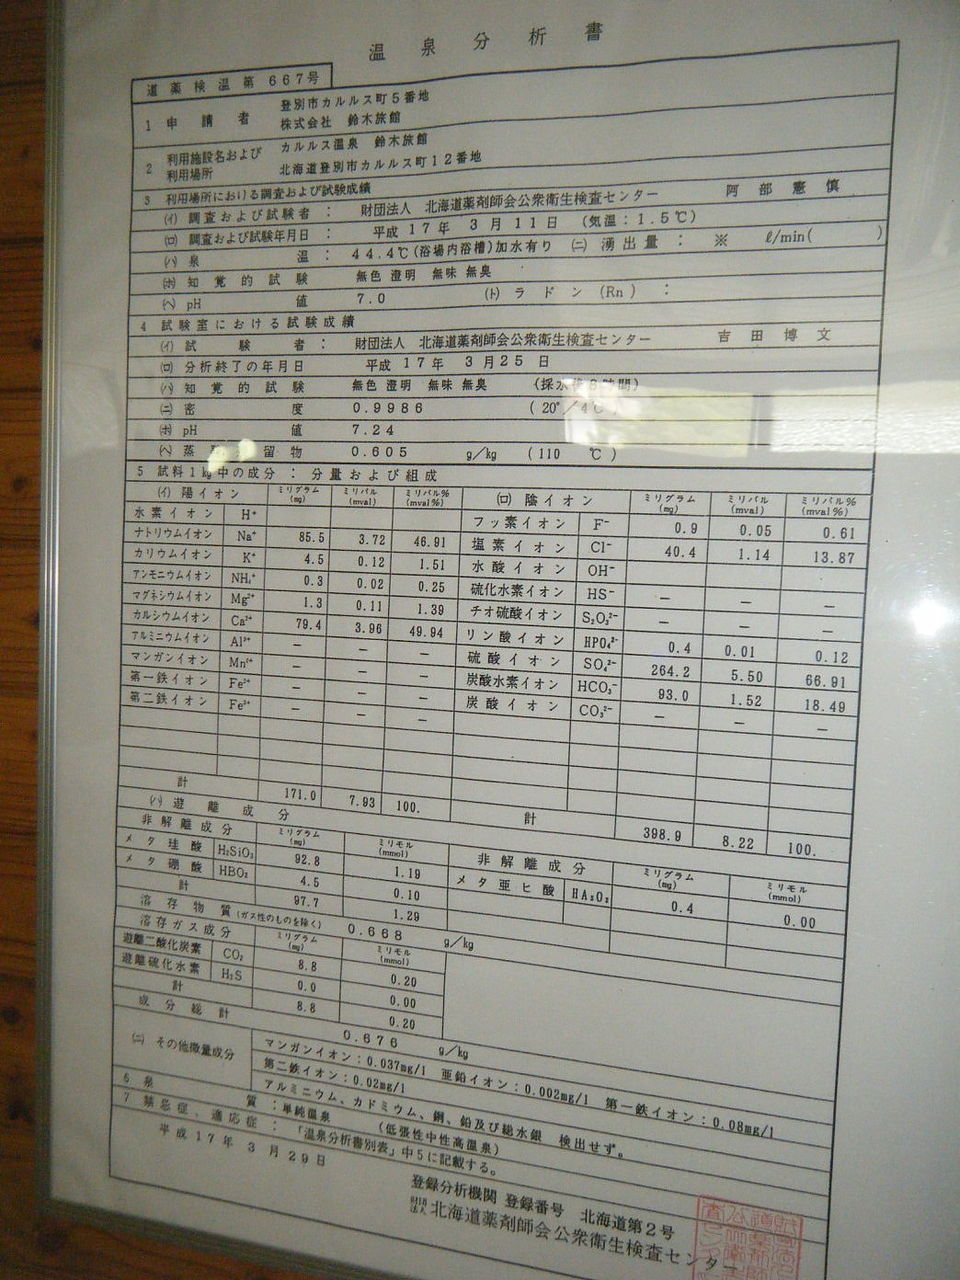 温泉分析書
道薬検温第667号
1 申請者 登別市カルルス町5番地
株式会社 鈴木旅館
2 利用施設名および利用場所 カルルス温泉 鈴木旅館
北海道登別市カルルス町12番地
3 利用場所における調査および試験成績
(イ) 調査および試験者： 財団法人 北海道薬剤師会公衆衛生検査センター 阿部憲慎
(ロ) 調査および試験年月日： 平成17年3月11日 (気温：1.5℃)
(ハ) 泉温： 44.4℃(浴場内浴槽)加水有り (ニ) 湧出量： ※ ℓ/min( )
(ホ) 知覚的試験 無色 澄明 無味 無臭
(ヘ) pH値 7.0 (ト) ラドン(Rn)：
4 試験室における試験成績
(イ) 試験者： 財団法人 北海道薬剤師会公衆衛生検査センター 吉田博文
(ロ) 分析終了の年月日 平成17年3月25日
(ハ) 知覚的試験 無色 澄明 無味 無臭 (採水後 時間)
(ニ) 密度 0.9986 (20°/4℃)
(ホ) pH値 7.24
(ヘ) 蒸 留物 0.605 g/kg (110 ℃)
5 試料1kg中の成分：分量および組成
(イ) 陽イオン ミリグラム(mg) ミリバル(mval) ミリバル%(mval%) (ロ) 陰イオン ミリグラム(mg) ミリバル(mval) ミリバル%(mval%)
水素イオン H⁺ フッ素イオン F⁻ 0.9 0.05 0.61
ナトリウムイオン Na⁺ 85.5 3.72 46.91 塩素イオン Cl⁻ 40.4 1.14 13.87
カリウムイオン K⁺ 4.5 0.12 1.51 水酸イオン OH⁻
アンモニウムイオン NH₄⁺ 0.3 0.02 0.25 硫化水素イオン HS⁻ — — —
マグネシウムイオン Mg²⁺ 1.3 0.11 1.39 チオ硫酸イオン S₂O₃²⁻ — — —
カルシウムイオン Ca²⁺ 79.4 3.96 49.94 リン酸イオン HPO₄²⁻ 0.4 0.01 0.12
アルミニウムイオン Al³⁺ — — — 硫酸イオン SO₄²⁻ 264.2 5.50 66.91
マンガンイオン Mn²⁺ — — — 炭酸水素イオン HCO₃⁻ 93.0 1.52 18.49
第一鉄イオン Fe²⁺ — — — 炭酸イオン CO₃²⁻ — — —
第二鉄イオン Fe³⁺ — — —
計 171.0 7.93 100. 計 398.9 8.22 100.
(ハ) 遊離成分
非解離成分 ミリグラム(mg) ミリモル(mmol) 非解離成分 ミリグラム(mg) ミリモル(mmol)
メタ珪酸 H₂SiO₃ 92.8 1.19 メタ亜ヒ酸 HAsO₂ 0.4 0.00
メタ硼酸 HBO₂ 4.5 0.10
計 97.7 1.29
溶存物質(ガス性のものを除く) 0.668 g/kg
溶存ガス成分 ミリグラム(mg) ミリモル(mmol)
遊離二酸化炭素 CO₂ 8.8 0.20
遊離硫化水素 H₂S 0.0 0.00
計 8.8 0.20
成分総計 0.676 g/kg
(ニ) その他微量成分 マンガンイオン：0.037mg/l 亜鉛イオン：0.002mg/l 第一鉄イオン：0.08mg/l
第二鉄イオン：0.02mg/l
アルミニウム、カドミウム、銅、鉛及び総水銀 検出せず。
6 泉質：単純温泉 (低張性中性高温泉)
7 禁忌症、適応症：「温泉分析書別表」中5に記載する。
平成17年3月29日
登録分析機関 登録番号 北海道第2号
財団法人 北海道薬剤師会公衆衛生検査センター